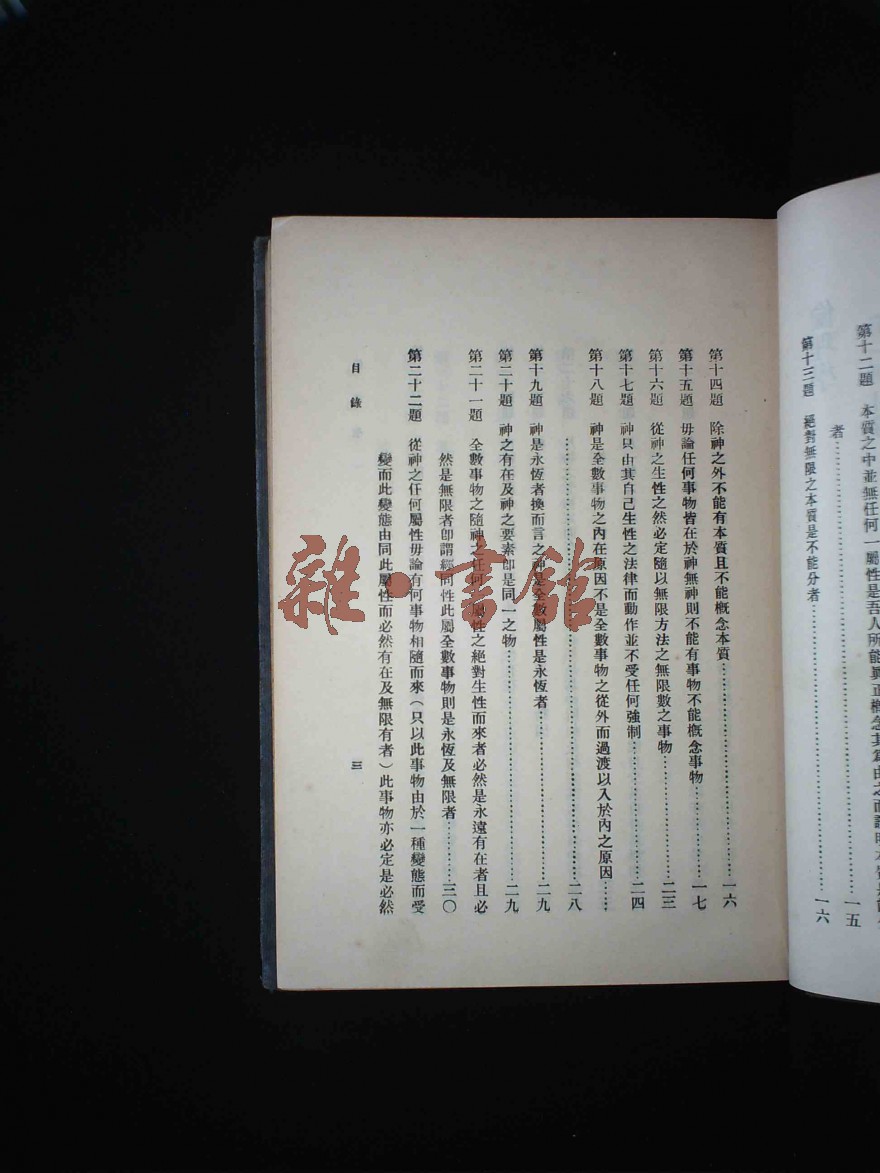 第十二題　本質之中並無任何一屬性是吾人所能真正概念其為由之而證明本質是能分
者……………………一五
第十三題　絕對無限之本質是不能分者……………………一六
第十四題　除神之外不能有本質且不能概念本質……………………一六
第十五題　毋論任何事物皆在於神無神則不能有事物不能概念事物……………………一七
第十六題　從神之生性之然必定隨以無限方法之無限數之事物……………………二三
第十七題　神只由其自己生性之法律而動作並不受任何強制……………………二四
第十八題　神是全數事物之內在原因不是全數事物之從外而過渡以入於內之原因……
……………………二八
第十九題　神是永恆者換而言之神是全數屬性是永恆者……………………二九
第二十題　神之有在及神之要素卽是同一之物……………………二九
第二十一題　全數事物之隨神之任何一屬性之絕對生性而來者必然是永遠有在者且必
然是無限者卽謂經同性此屬全數事物則是永恆及無限者…………三〇
第二十二題　從神之任何屬性毋論有何事物相隨而來（只以此事物由於一種變態而受
變而此變態由同此屬性而必然有在及無限有者）此事物亦必定是必然
目錄
三
雜·書館